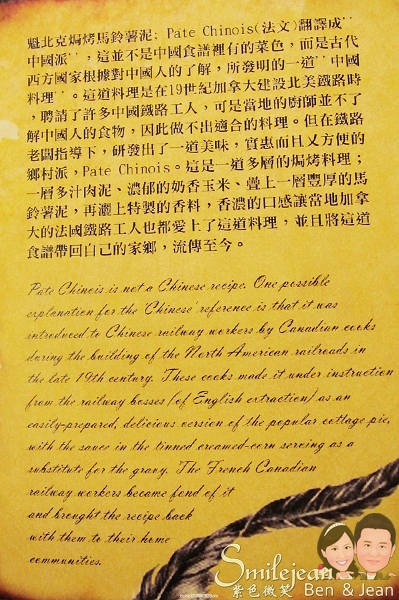 魁北克焗烤馬鈴薯泥; Pate Chinois(法文)翻譯成``
中國派``，這並不是中國食譜裡有的菜色，而是古代
西方國家根據對中國人的了解，所發明的一道``中國
料理``。這道料理是在19世紀加拿大建設北美鐵路時
，聘請了許多中國鐵路工人，可是當地的廚師並不了
解中國人的食物，因此做不出適合的料理。但在鐵路
老闆指導下，研發出了一道美味，實惠而且又方便的
鄉村派，Pate Chinois。這是一道多層的焗烤料理；
一層多汁肉泥、濃郁的奶香玉米、疊上一層豐厚的馬
鈴薯泥，再灑上特製的香料，香濃的口感讓當地加拿
大的法國鐵路工人也都愛上了這道料理，並且將這道
食譜帶回自己的家鄉，流傳至今。
Pate Chinois is not a Chinese recipe. One possible
explanation for the 'Chinese' reference is that it was
introduced to Chinese railway workers by Canadian cooks
during the building of the North American railroads in
the late 19th century. These cooks made it under instruction
from the railway bosses (of English extraction) as an
easily-prepared, delicious version of the popular cottage pie,
with the sauce in the tinned creamed-corn serving as a
substitute for the gravy. The French Canadian
railway workers became fond of it
and brought the recipe back
with them to their home
communities.
Smilejean
紫色微笑 Ben & Jean